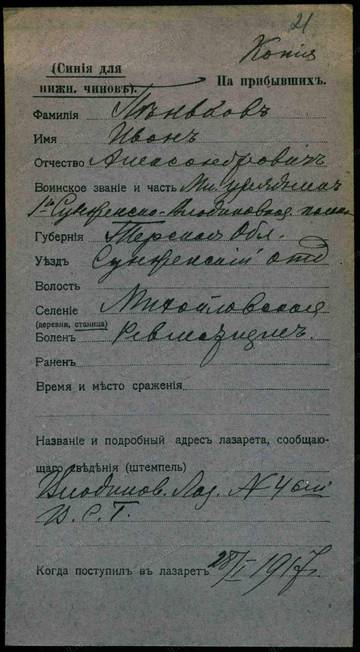 21
Копія
(Синія для
нижн. чиновъ).
На прибывшихъ.
Фамилія
Имя Иванъ
Отчество Александровичъ
Воинское званіе и часть Мл. урядникъ
1го Сунженско-Владикавказ. полка
Губернія Терской Обл.
Уѣздъ Сунженскій отд
Волость
Селеніе Михайловская
(деревня, станица)
Боленъ Ревматизмъ.
Раненъ
Время и мѣсто сраженія
Названіе и подробный адресъ лазарета, сообщаю-
щаго свѣдѣнія (штемпель)
Владиков. Лаз. N 4
В. С. Г.
Когда поступилъ въ лазаретъ 28/I 1917 г.